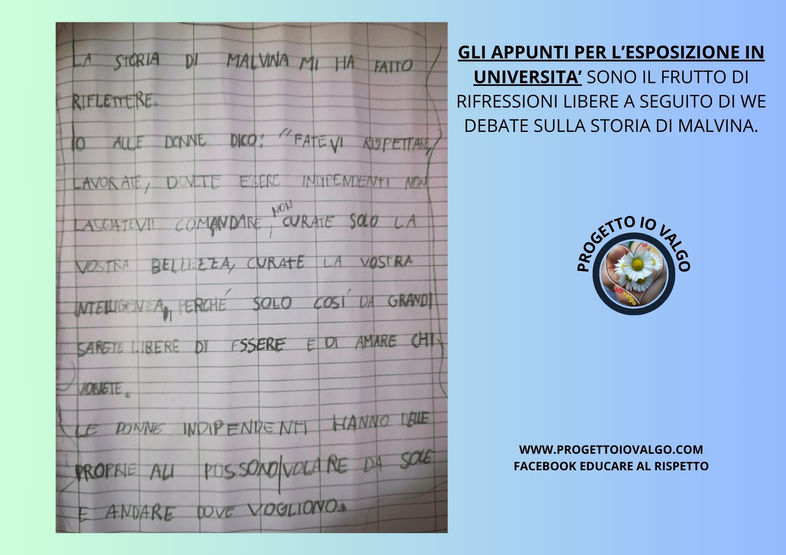 LA STORIA DI MALVINA MI HA FATTO
RIFLETTERE.
IO ALLE DONNE DICO: "FATEVI RISPETTARE,
LAVORATE, DOVETE ESSERE INDIPENDENTI NON
LASCIATEVI COMANDARE, NON CURATE SOLO LA
VOSTRA BELLEZZA, CURATE LA VOSTRA
INTELLIGENZA, PERCHÉ SOLO COSÍ DA GRANDI
SARETE LIBERE DI ESSERE E DI AMARE CHI
VOLETE.
LE DONNE INDIPENDENTI HANNO DELLE
PROPRIE ALI POSSONO VOLARE DA SOLE
E ANDARE DOVE VOGLIONO.
GLI APPUNTI PER L'ESPOSIZIONE IN
UNIVERSITA' SONO IL FRUTTO DI
RIFRESSIONI LIBERE A SEGUITO DI WE
DEBATE SULLA STORIA DI MALVINA.
PROGETTO IO VALGO
WWW.PROGETTOIOVALGO.COM
FACEBOOK EDUCARE AL RISPETTO